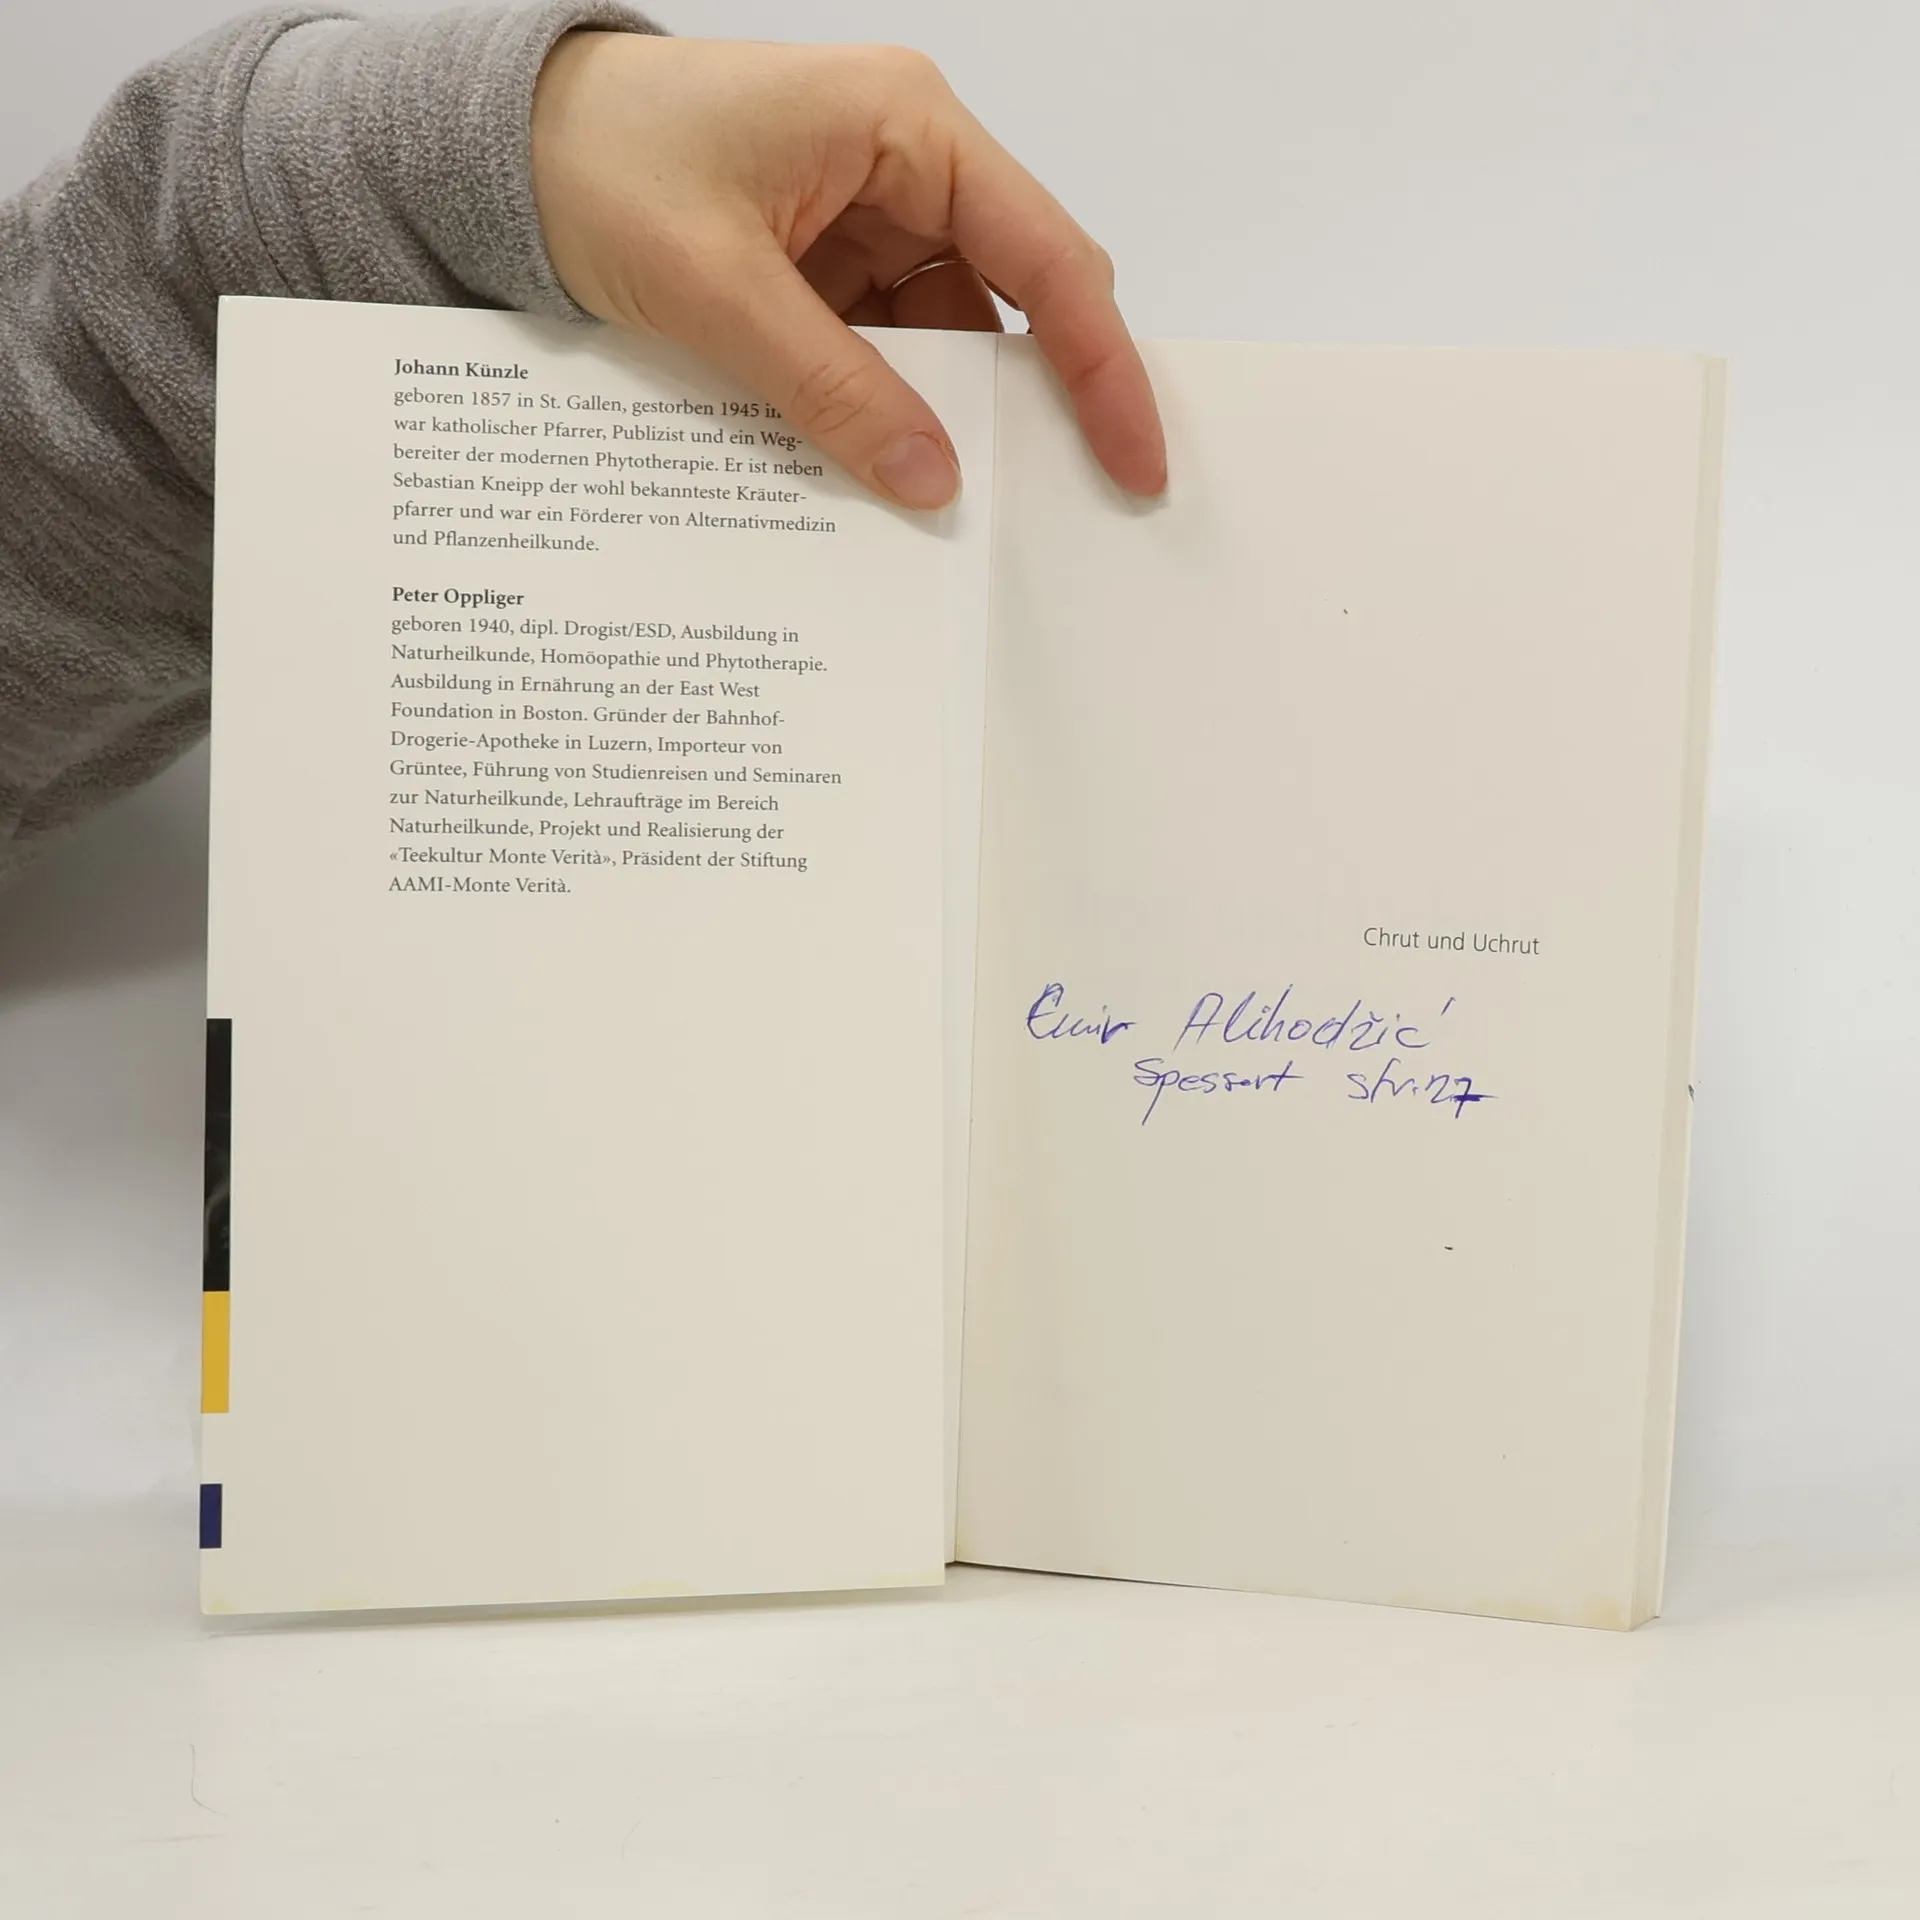 Johann Künzle
geboren 1857 in St. Gallen, gestorben 1945 in
war katholischer Pfarrer, Publizist und ein Weg-
bereiter der modernen Phytotherapie. Er ist neben
Sebastian Kneipp der wohl bekannteste Kräuter-
pfarrer und war ein Förderer von Alternativmedizin
und Pflanzenheilkunde.
Peter Oppliger
geboren 1940, dipl. Drogist/ESD, Ausbildung in
Naturheilkunde, Homöopathie und Phytotherapie.
Ausbildung in Ernährung an der East West
Foundation in Boston. Gründer der Bahnhof-
Drogerie-Apotheke in Luzern, Importeur von
Grüntee, Führung von Studienreisen und Seminaren
zur Naturheilkunde, Lehraufträge im Bereich
Naturheilkunde, Projekt und Realisierung der
«Teekultur Monte Verità», Präsident der Stiftung
AAMI-Monte Verità.
Chrut und Uchrut
Emir Alihodžić
Spessart str. 27